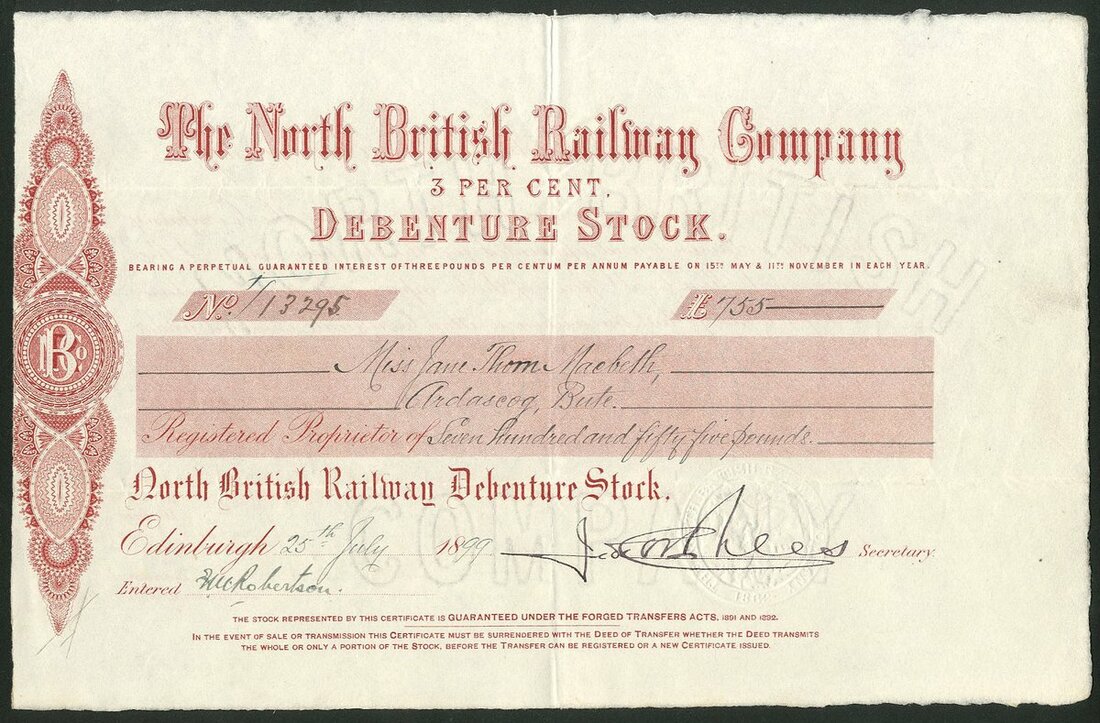 The North British Railway Company
3 PER CENT.
DEBENTURE STOCK.
BEARING A PERPETUAL GUARANTEED INTEREST OF THREE POUNDS PER CENTUM PER ANNUM PAYABLE ON 15TH MAY & 11TH NOVEMBER IN EACH YEAR.
No. 13295 £ 755
Miss Jane Thom Macbeth,
Ardascog, Bute.
Registered Proprietor of Seven hundred and fifty five pounds.
North British Railway Debenture Stock.
Edinburgh 25th July 1899 Secretary.
Entered Robertson.
THE STOCK REPRESENTED BY THIS CERTIFICATE IS GUARANTEED UNDER THE FORGED TRANSFERS ACTS, 1891 AND 1892.
IN THE EVENT OF SALE OR TRANSMISSION THIS CERTIFICATE MUST BE SURRENDERED WITH THE DEED OF TRANSFER WHETHER THE DEED TRANSMITS
THE WHOLE OR ONLY A PORTION OF THE STOCK, BEFORE THE TRANSFER CAN BE REGISTERED OR A NEW CERTIFICATE ISSUED.